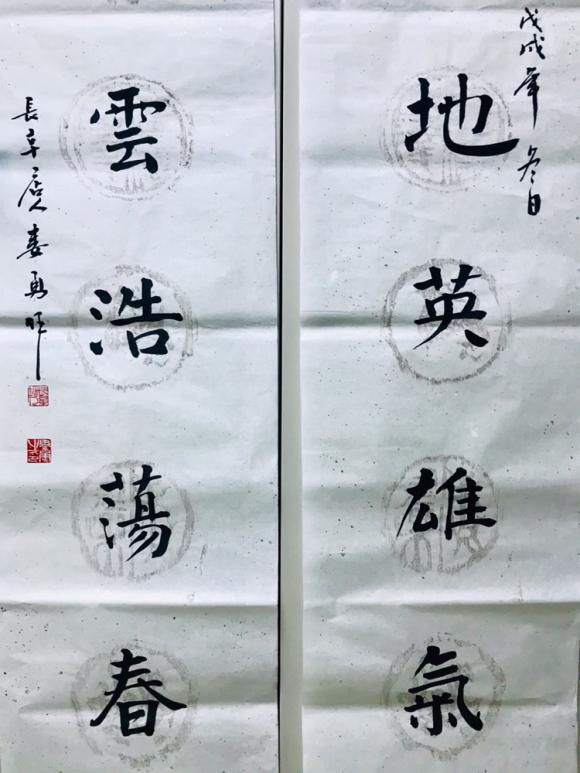 戊戌年冬日
地英雄氣
雲浩蕩春
長辛店人娄勇